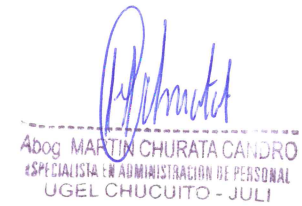 Abog MARTIN CHURATA CANDRO
ESPECIALISTA EN ADMINISTRACIÓN DE PERSONAL
UGEL CHUCUITO - JULI